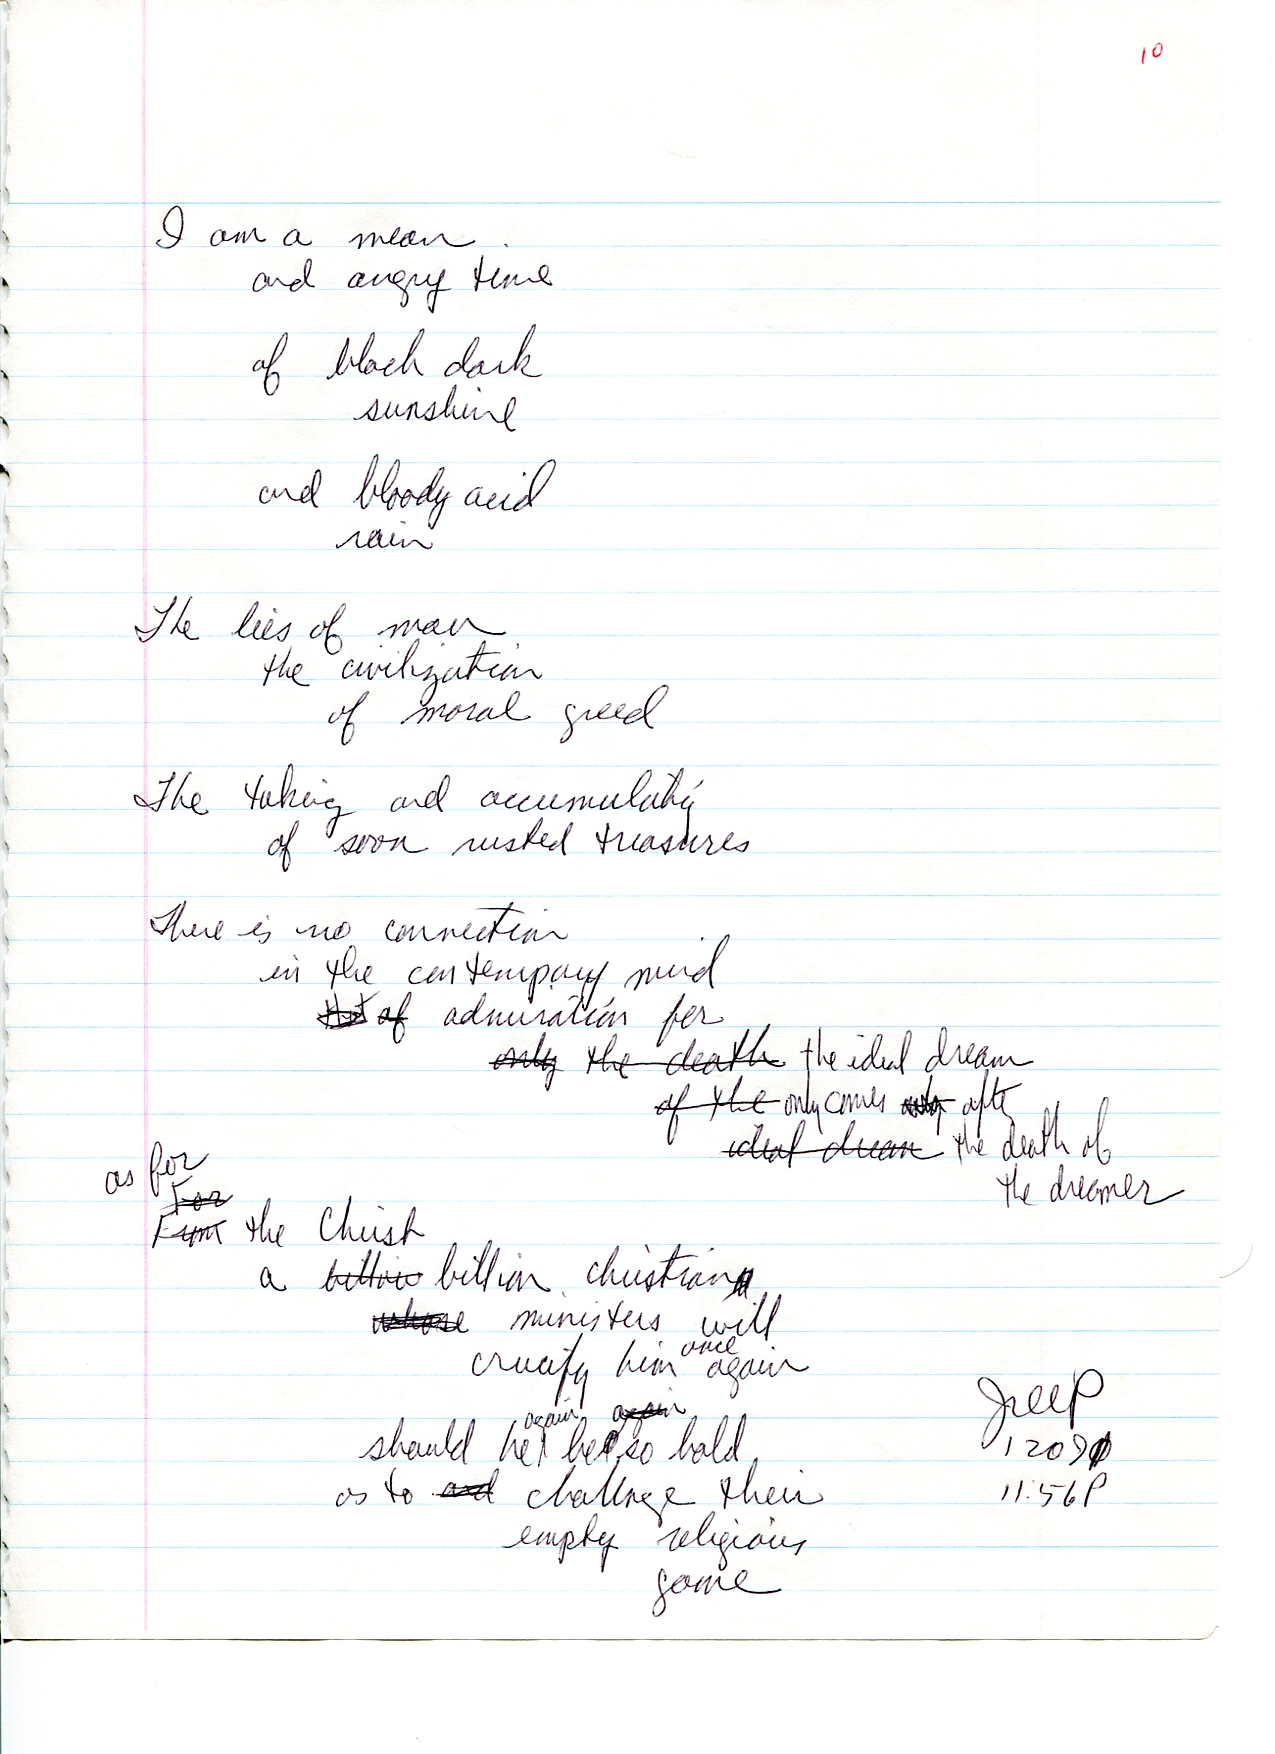 10
I am a mean
and angry time
of black dark
sunshine
and bloody acid
rain
The lies of man
the civilization
of moral greed
The taking and accumulating
of soon rusted treasures
There is no connection
in the contempary mind
of admiration for
only the death the ideal dream
of the only comes only after
ideal dream the death of
the dreamer
as for
For
From the Christ
a billion billion christian
whose ministers will
crucify him once again
again again
should he be so bold
as to and challenge their
empty religious
game
11:56P